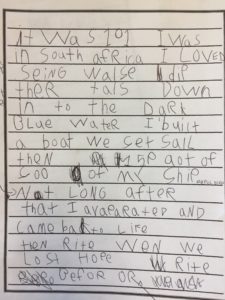 it was 101 I was
in South africa I LOVED
Seing walse dip
ther tals Down
in to the Dark
Blue water I built
a boat we set Sail
then got of
of my Ship
Not LONG after
that I AND
came back to Life
then Rite wen we
Lost Hope Write
Befor OR